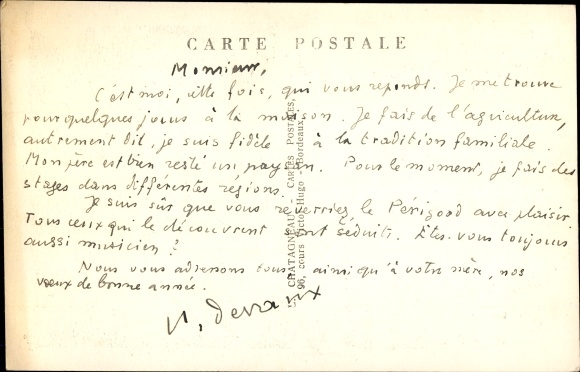 CARTE POSTALE
Monsieur,
C'est moi, cette fois, qui vous réponds. Je me trouve
pour quelques jours à la maison. Je fais de l'agriculture,
autrement dit, je suis fidèle à la tradition familiale.
Mon père est bien resté un paysan. Pour le moment, je fais des
stages dans différentes régions.
Je suis sûr que vous reverriez le Périgord avec plaisir.
Tous ceux qui le découvrent sont séduits. Êtes-vous toujours
aussi musicien ?
Nous vous adressons tous, ainsi qu'à votre mère, nos
vœux de bonne année.
CHATAGNEAU - CARTES POSTALES,
96, cours Victor-Hugo - Bordeaux